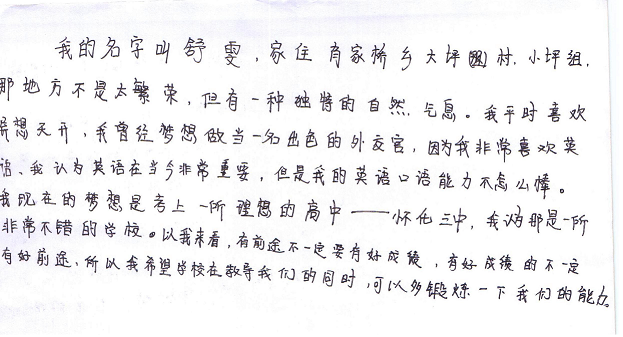 我的名字叫舒雯，家住肖家桥乡大坪村，小坪组，
那地方不是太繁荣，但有一种独特的自然气息。我平时喜欢
异想天开，我曾经梦想做当一名出色的外交官，因为我非常喜欢英
语、我认为英语在当今非常重要，但是我的英语口语能力不怎么棒。
我现在的梦想是考上一所理想的高中——怀化三中，我认为那是一所
非常不错的学校。以我来看，有前途不一定要有好成绩，有好成绩的不一定
有好前途、所以我希望学校在教导我们的同时，可以多锻炼一下我们的能力。